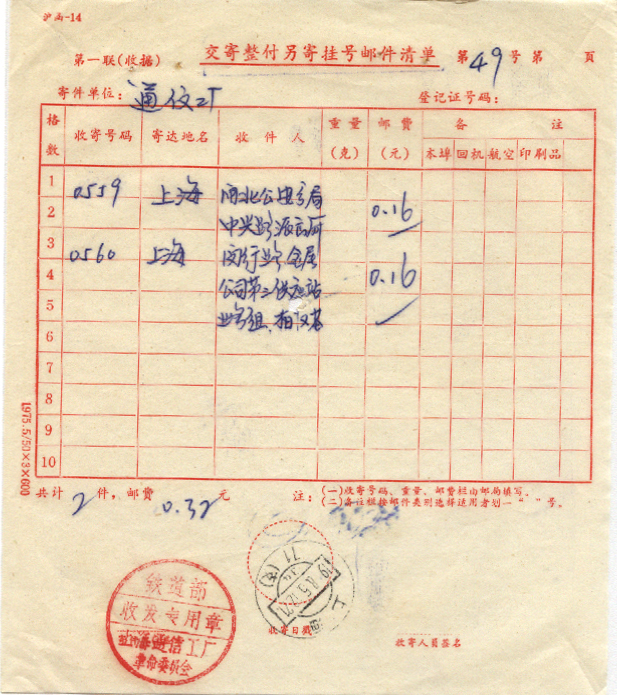 沪函-14
第一联(收据) 交寄整付另寄挂号邮件清单 第49号第 頁
寄件单位： 通仪厂 登记证号码：
格数 收寄号码 寄达地名 收件人 重量(克) 邮费(元) 备注
本埠 回机 航空 印刷品
1 0559 上海 闸北公安分局
2 中兴路派出所 0.16
3 0560 上海 闵行路 金属
4 公司第二供应站 0.16
5
6
7
8
9
10
共计 2 件，邮费 0.32 元 注：(一)收寄号码、重量、邮费栏由邮局填写。
(二)各位栏按邮件类别选择适用者划一“ ”号。
1975.5/50×3×600
铁道部
收发专用章
通信工厂
革命委员会
上海
收寄日戳
收寄人员签名